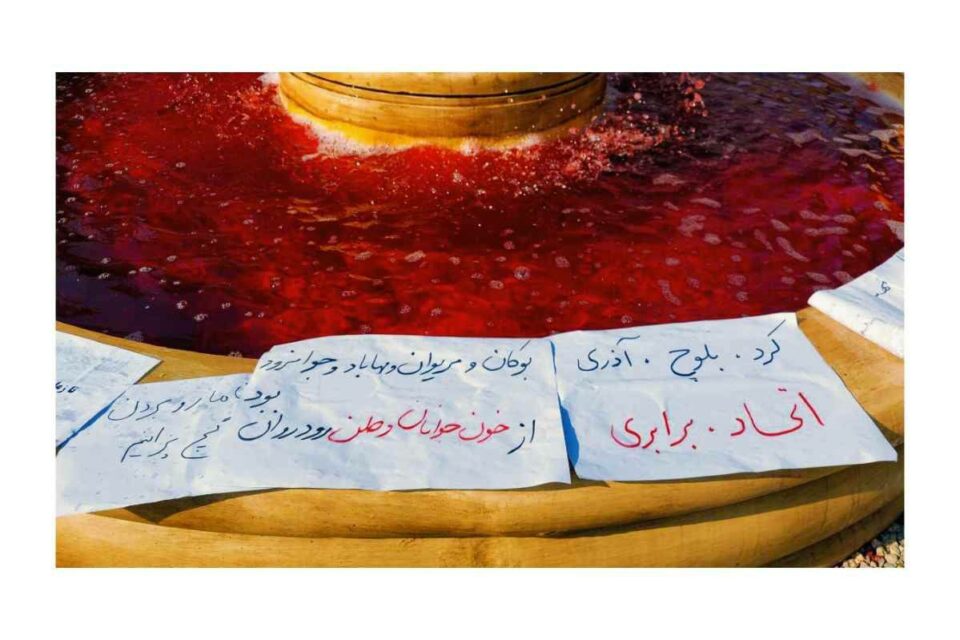 کرد . بلوچ . آذری
اتحاد . برابری
بوکان و مریوان و مهاباد و جوانرود
از خون جوانان وطن رود روان
بود تا ما رو بردن
تیغ برانیم